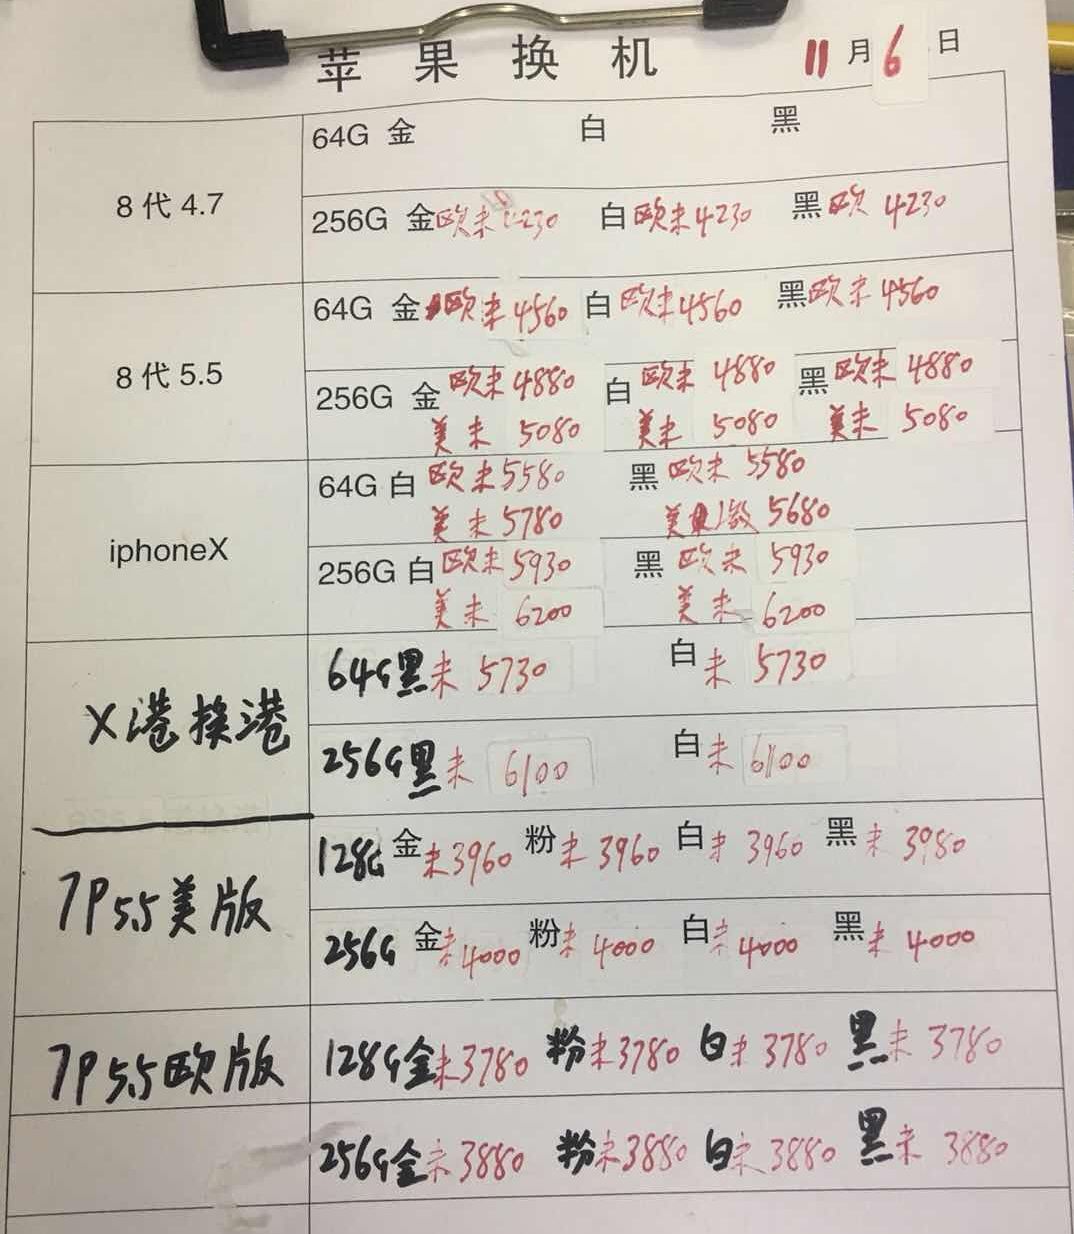 苹果换机 11月6日
8代4.7
64G 金 白 黑
256G 金欧未4230 白欧未4230 黑欧 4230
8代5.5
64G 金欧未4560 白欧未4560 黑欧未4560
256G 金欧未4880 白欧未4880 黑欧未4880
美未5080 美未5080 美未5080
iphoneX
64G 白欧未5580 黑欧未5580
美未5780 美 激5680
256G 白欧未5930 黑欧未5930
美未6200 美未6200
X港换港
64G黑未5730 白未5730
256G黑未6100 白未6100
7P5.5美版
128G 金未3960 粉未3960 白未3960 黑未3980
256G 金未4000 粉未4000 白未4000 黑未4000
7P5.5欧版
128G金未3780 粉未3780 白未3780 黑未3780
256G金未3880 粉未3880 白未3880 黑未3880